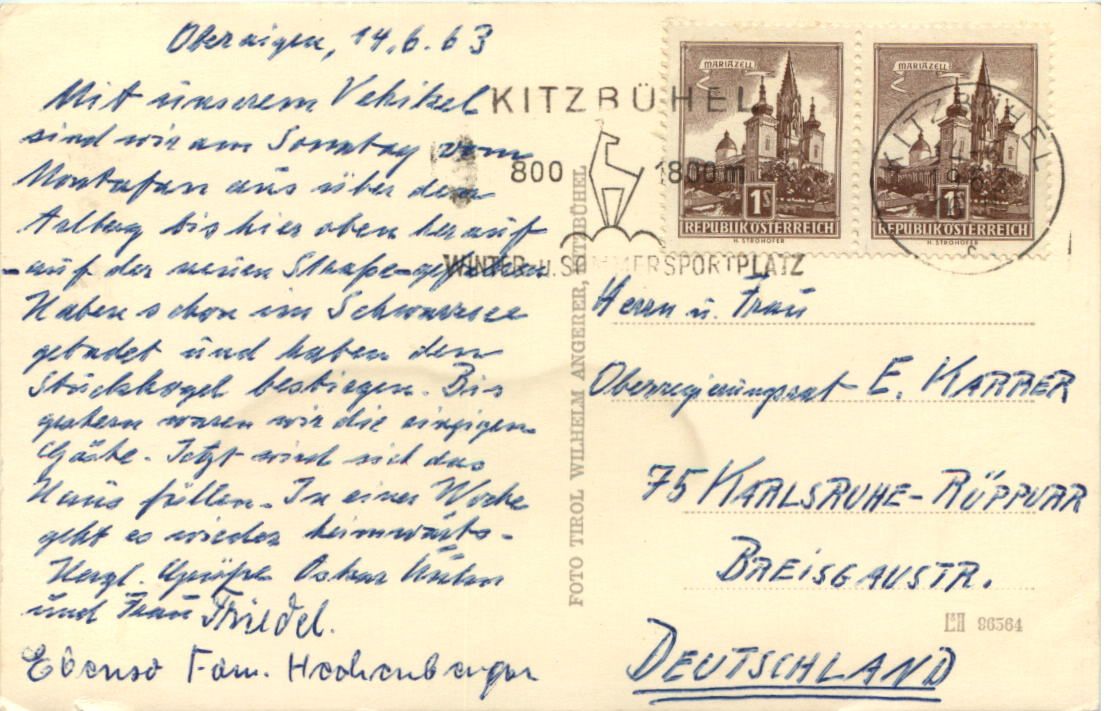 Oberaigen, 14.6.63
Mit unserem Vehikel
sind wir am Sonntag vom
Montafon aus über den
Arlberg bis hier oben herauf
auf der neuen Straße gefahren
Haben schon im Schwarzsee
gebadet und haben den
Stuckkogel bestiegen. Bis
gestern waren wir die einzigen
Gäste. Jetzt wird sich das
Haus füllen. In einer Woche
geht es wieder heimwärts.
Herzl. Grüße Oskar
und Frau Friedel.
Ebenso Fam. Hechenberger
KITZBÜHEL
800 1800 m
WINTER- u. SOMMERSPORTPLATZ
MARIAZELL
1S
REPUBLIK ÖSTERREICH
H. STROHOFER
MARIAZELL
1S
REPUBLIK ÖSTERREICH
H. STROHOFER
KITZBÜHEL
FOTO TIROL WILHELM ANGERER, KITZBÜHEL
Herrn u. Frau
Oberregierungsrat E. KARRER
75 KARLSRUHE-RÜPPURR
BREISGAUSTR.
DEUTSCHLAND
96564